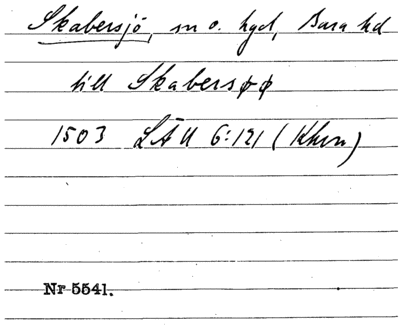 Skabersjö, sn o. hgd, Bara hd
till Skabersøø
1503 LÄU 6:121 (Khvn)
Nr 5541.